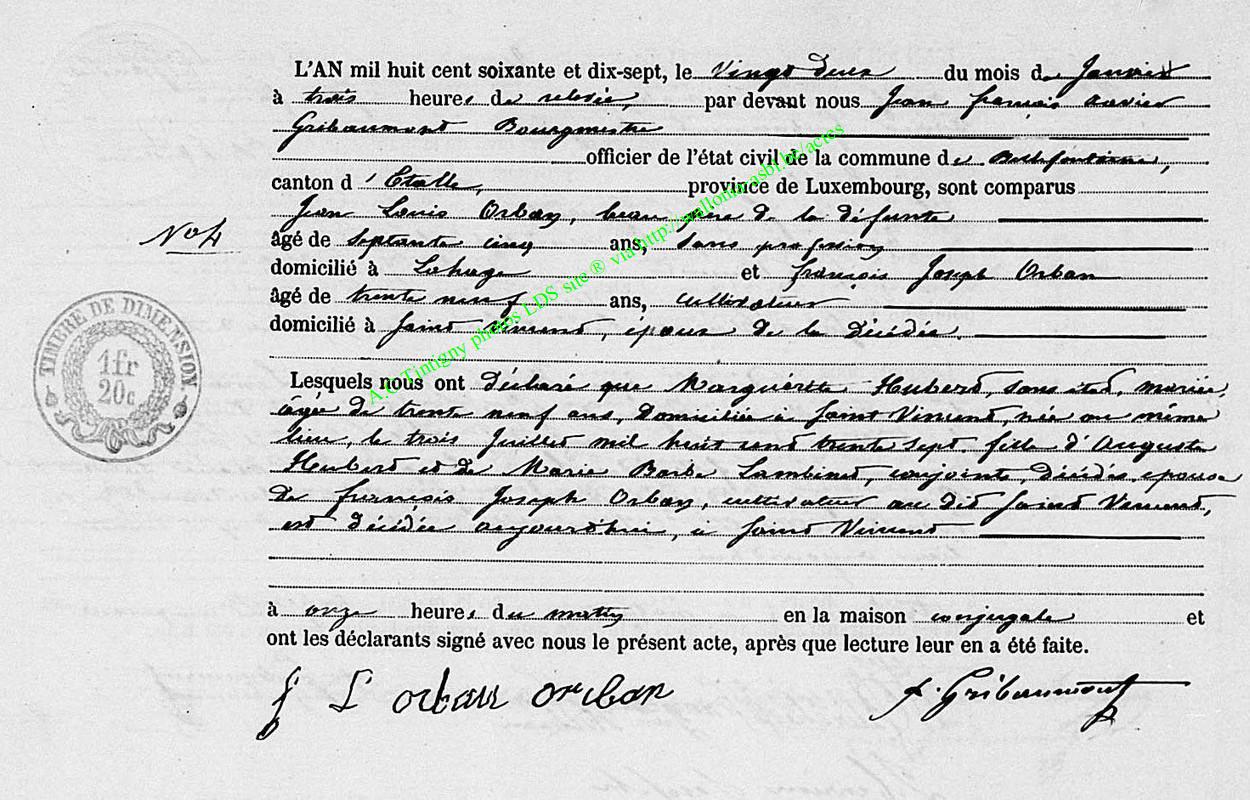 L'AN mil huit cent soixante et dix-sept, le Vingt deux du mois de Janvier
à trois heures de relevée, par devant nous Jean françois xavier
Gribaumont Bourgmestre
officier de l'état civil de la commune de Bellefontaine,
canton d'Etalle, province de Luxembourg, sont comparus
Jean Louis Orban, beau père de la défunte
No 4
âgé de septante cinq ans, sans profession
domicilié à Lahage et françois Joseph Orban
âgé de trente neuf ans, cultivateur
domicilié à Saint Vincent, époux de la décédée.
TIMBRE DE DIMENSION
1fr
20c
Lesquels nous ont déclaré que Marguérette Hubert, sans état, mariée,
âgée de trente neuf ans, domiciliée à Saint Vincent, née au même
lieu, le trois Juillet mil huit cent trente sept, fille d'Auguste
Hubert et de Marie Barbe Lambinet, conjoints, décédés, épouse
de françois Joseph Orban, cultivateur au dit Saint Vincent,
est décédée aujourdhui, à Saint Vincent
à onze heures du matin en la maison conjugale et
ont les déclarants signé avec nous le présent acte, après que lecture leur en a été faite.
J L orban orban Gribaumont
A.C Tintigny photos LDS site ® via http://wallonia.asbl.be/actes